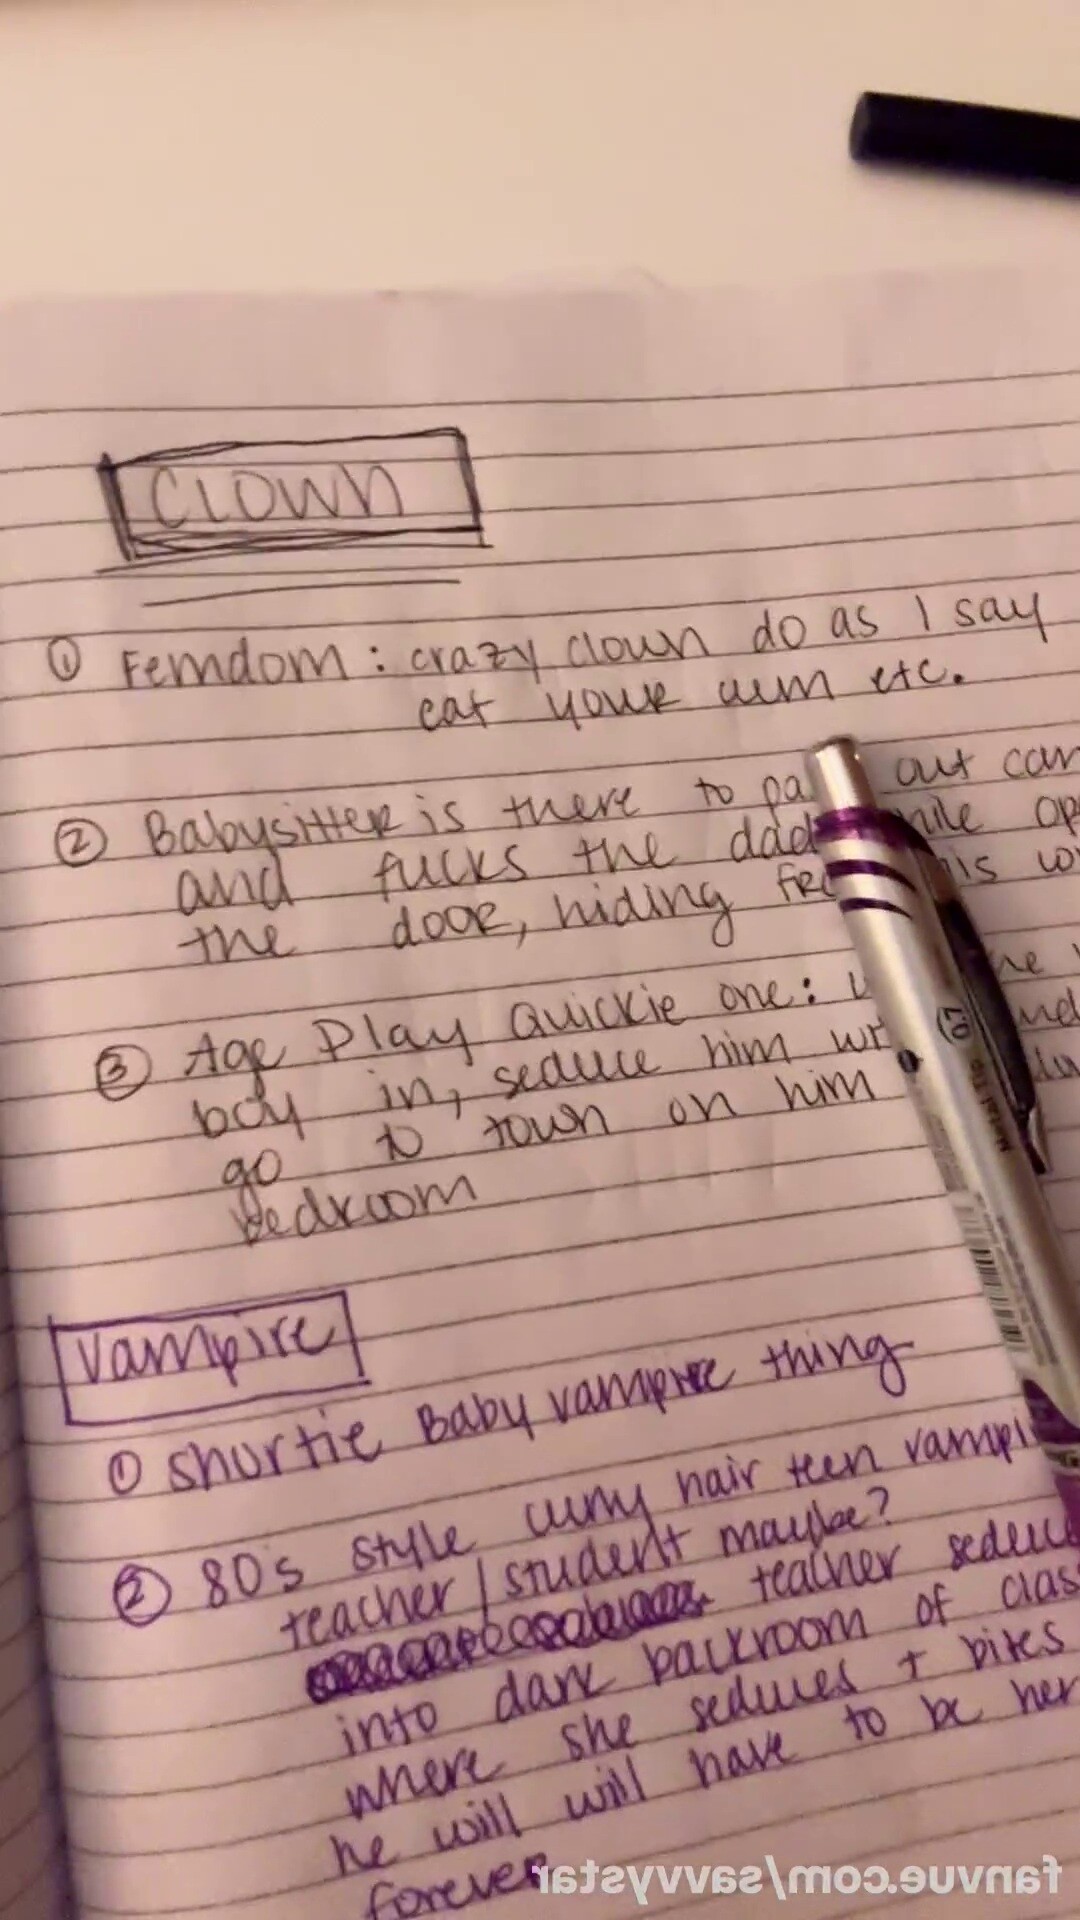 CLOWN
① Femdom: crazy clown do as I say
eat your cum etc.
② Babysitter is there to pa out can
and fucks the dad while op
the door, hiding his
③ Age Play Quickie one:
boy in, seduce him
go to town on him
bedroom
Vampire
① Shortie Baby vampire thing
② 80's style curly hair teen vampi
teacher/student maybe?
teacher seduc
into dark backroom of clas
where she seduces + bites
he will will have to be her
forever
fanvue.com/savvystar